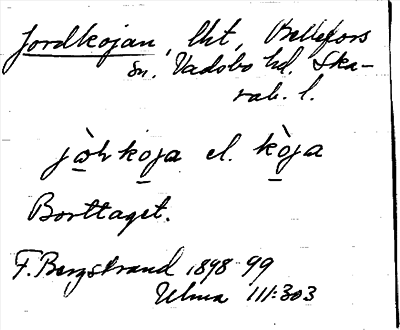 Jordkojan, lht, Bällefors
sn. Vadsbo hd. Ska-
rab. l.
jòrkoja el. kòja
Borttaget.
F. Bergstrand 1898-99
Ulma 111:303